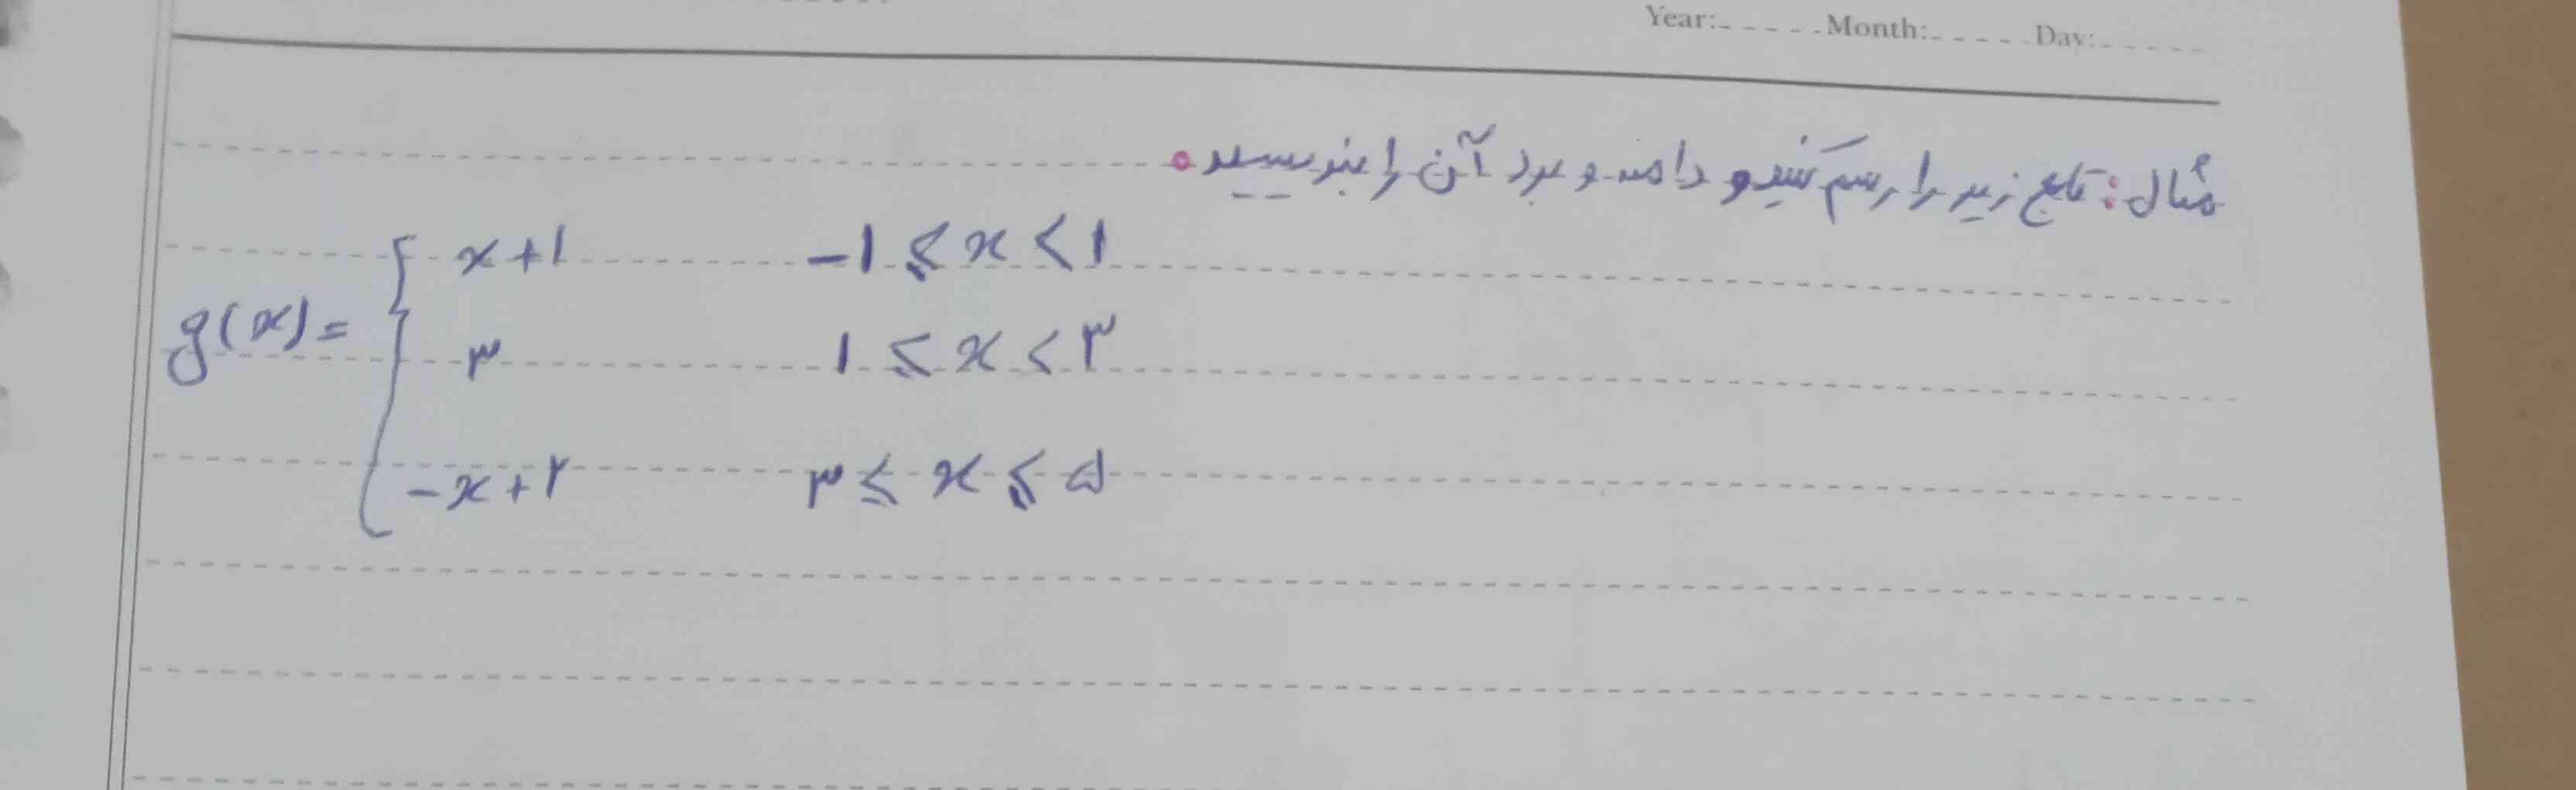 Year: Month: Day:
مثال: تابع زیر را رسم کنید و دامنه و برد آن را بنویسید.
g(x)= { x+۱ -۱ ≤ x < ۱
۳ ۱ ≤ x < ۳
-x+۲ ۳ ≤ x ≤ ۵